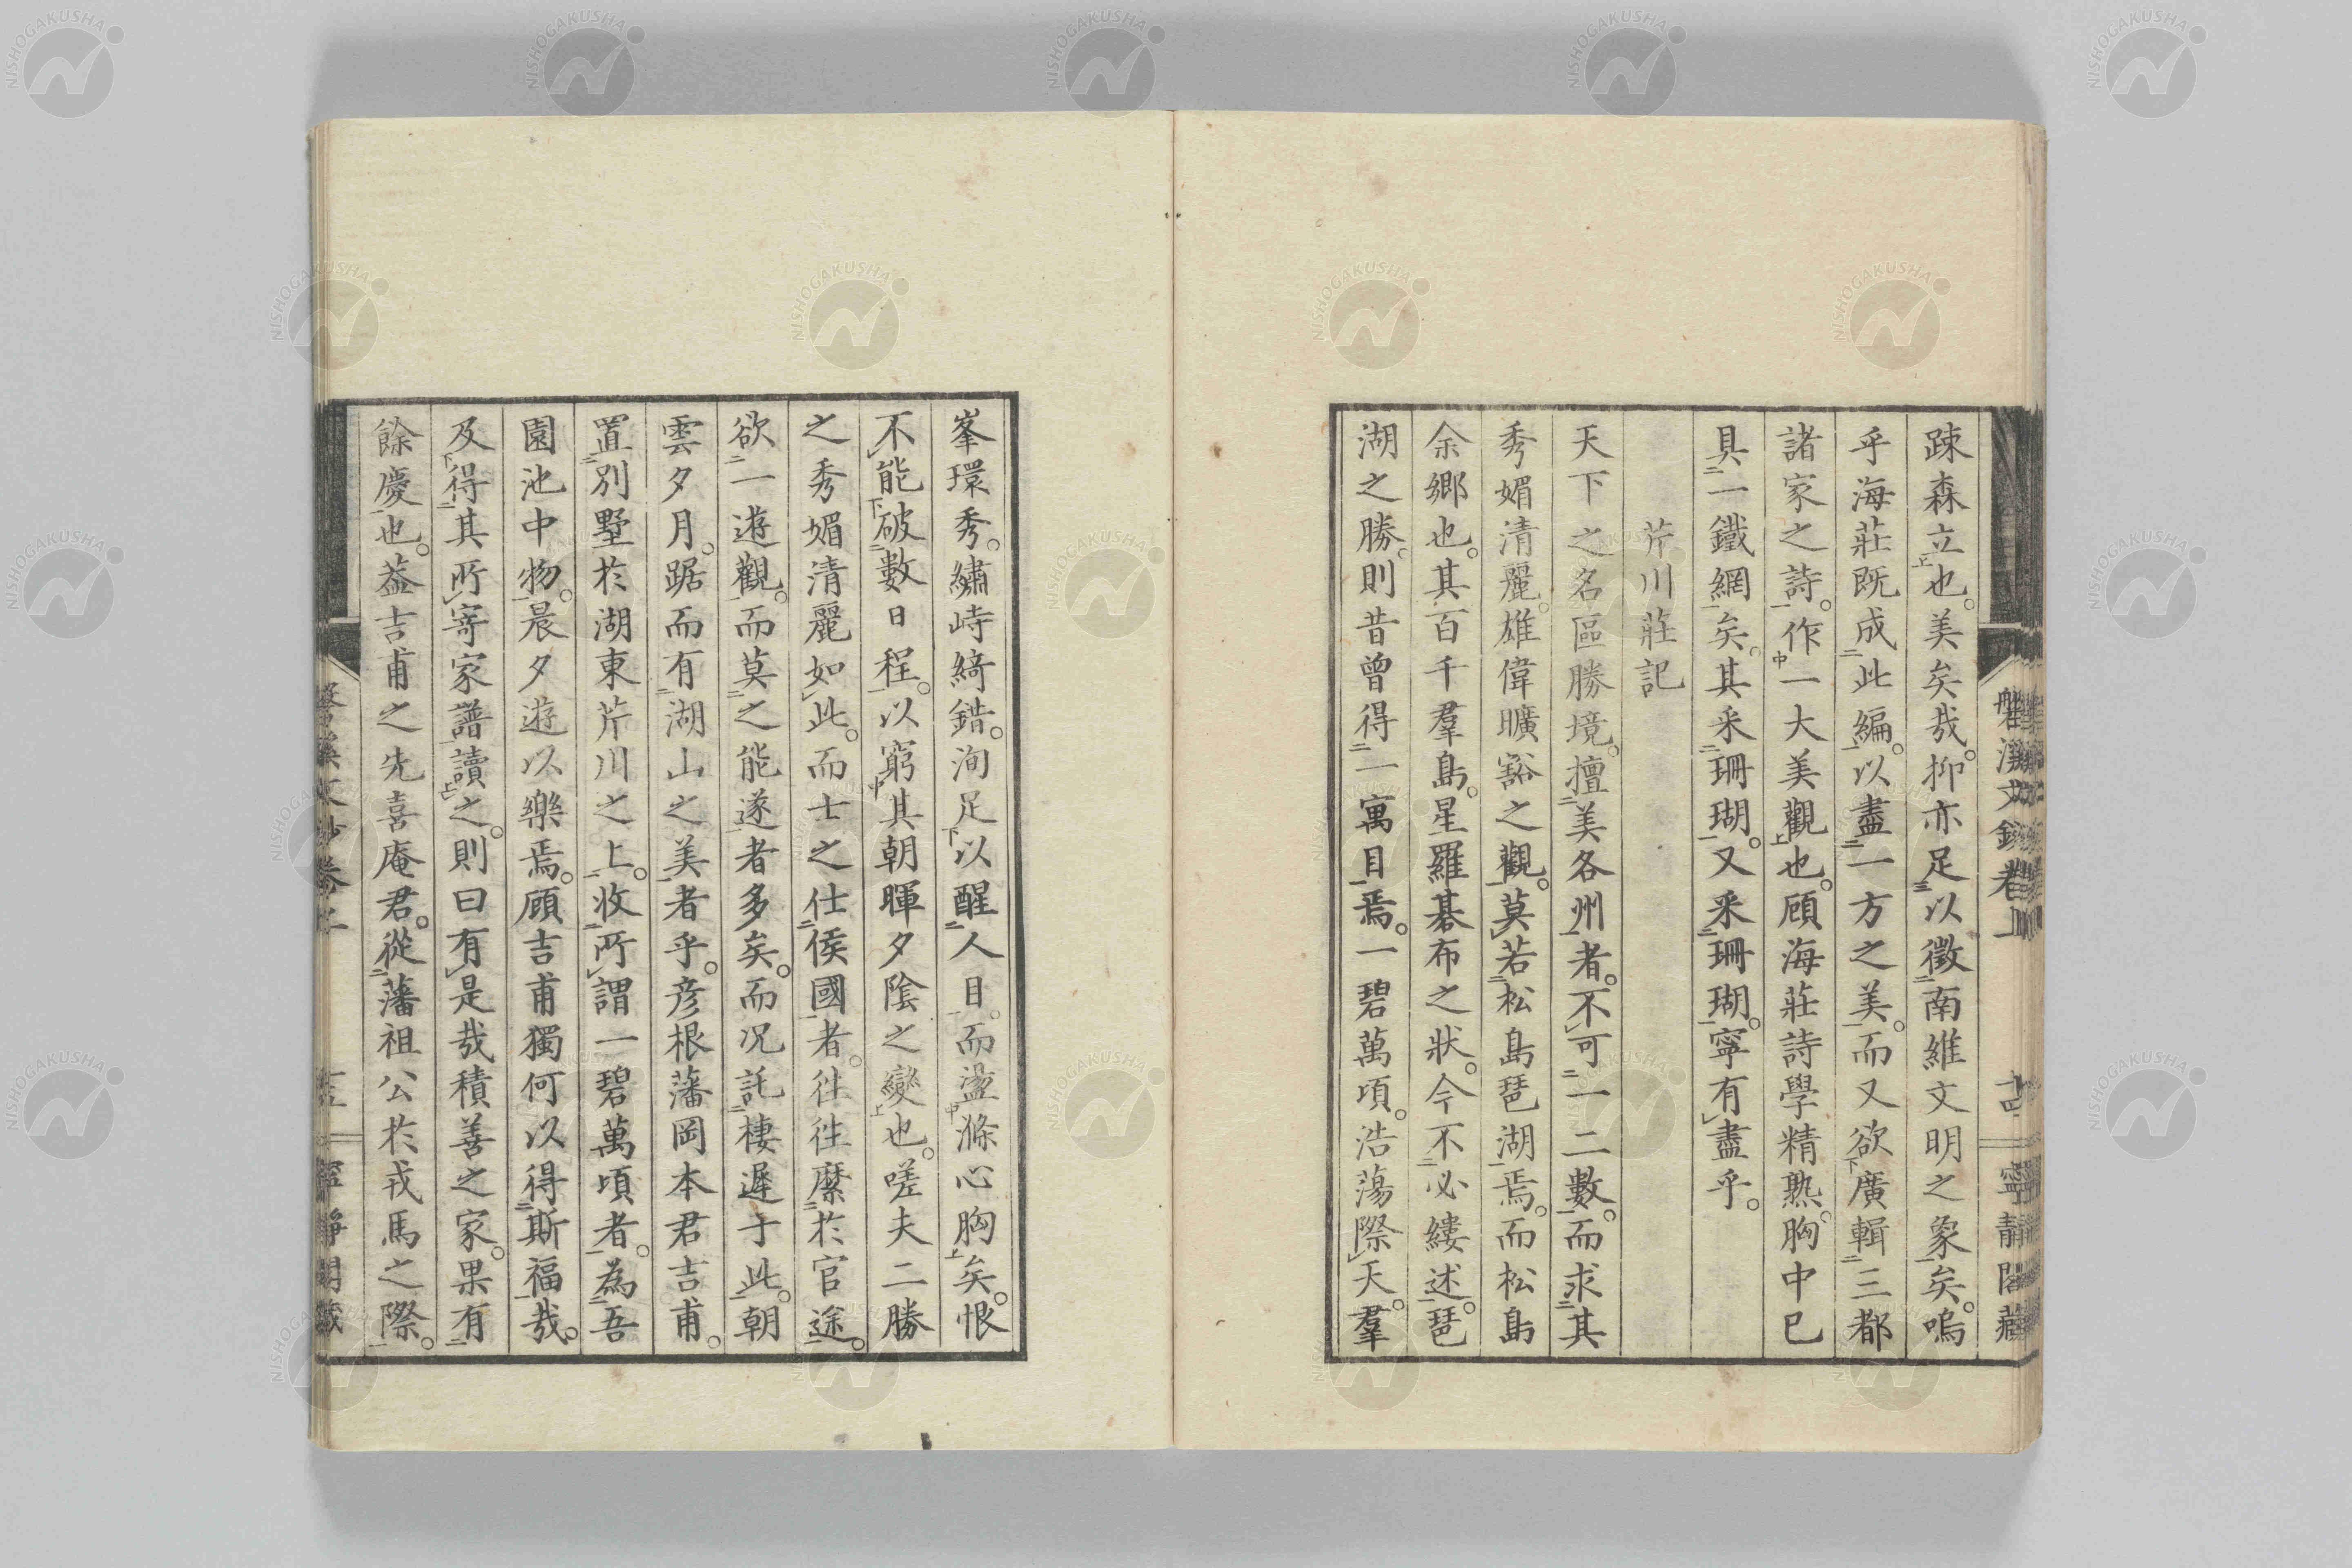 疎森立也。美矣哉。抑亦足以徵南維文明之象矣。嗚
乎海莊既成此編。以盡一方之美。而又欲廣輯三都
諸家之詩。作一大美觀也。顧海莊詩學精熟。胸中已
具一鐵網矣。其采珊瑚。又采珊瑚。寧有盡乎。
芹川莊記
天下之名區勝境。擅美各州者。不可一二數。而求其
秀媚清麗。雄偉曠豁之觀。莫若松島琶湖焉。而松島
余鄉也。其百千羣島。星羅碁布之狀。今不必縷述。琶
湖之勝。則昔曾得一寓目焉。一碧萬頃。浩蕩際天。羣
峯環秀。繡峙綺錯。洵足以醒人目。而盪滌心胸矣。恨
不能破數日程。以窮其朝暉夕陰之變也。嗟夫二勝
之秀媚清麗如此。而士之仕侯國者。往往縻於官途。
欲一遊觀。而莫之能遂者多矣。而況託棲遲于此。朝
雲夕月。踞而有湖山之美者乎。彥根藩岡本君吉甫。
置別墅於湖東芹川之上。收所謂一碧萬頃者。為吾
園池中物。晨夕遊以樂焉。顧吉甫獨何以得斯福哉。
及得其所寄家譜讀之。則曰有是哉積善之家。果有
餘慶也。葢吉甫之先喜庵君。從藩祖公於戎馬之際。
磐溪文鈔卷上
十四
寧靜閣藏
NISHOGAKUSHA